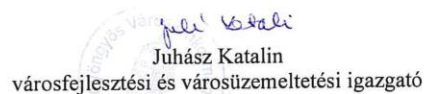 Juhász Katalin
városfejlesztési és városüzemeltetési igazgató